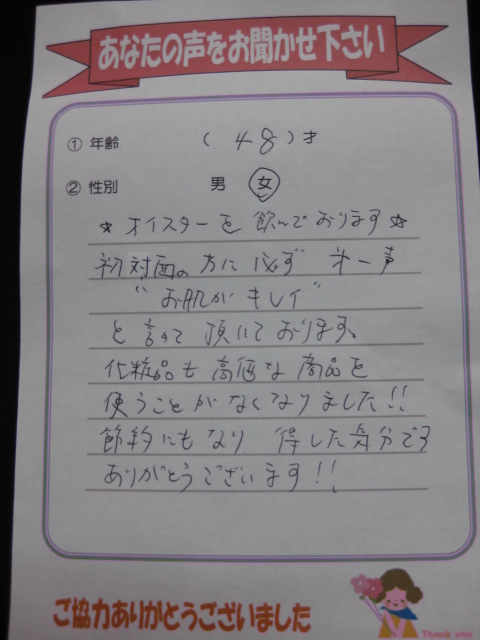 あなたの声をお聞かせ下さい
① 年齢 ( 48 ) 才
② 性別 男 女
☆ オイスターを飲んでおります ☆
初対面の方に必ず 第一声
“お肌がキレイ”
と言って頂いております。
化粧品も高価な商品を
使うことがなくなりました!!
節約にもなり 得した気分です
ありがとうございます!!
ご協力ありがとうございました
Thank you